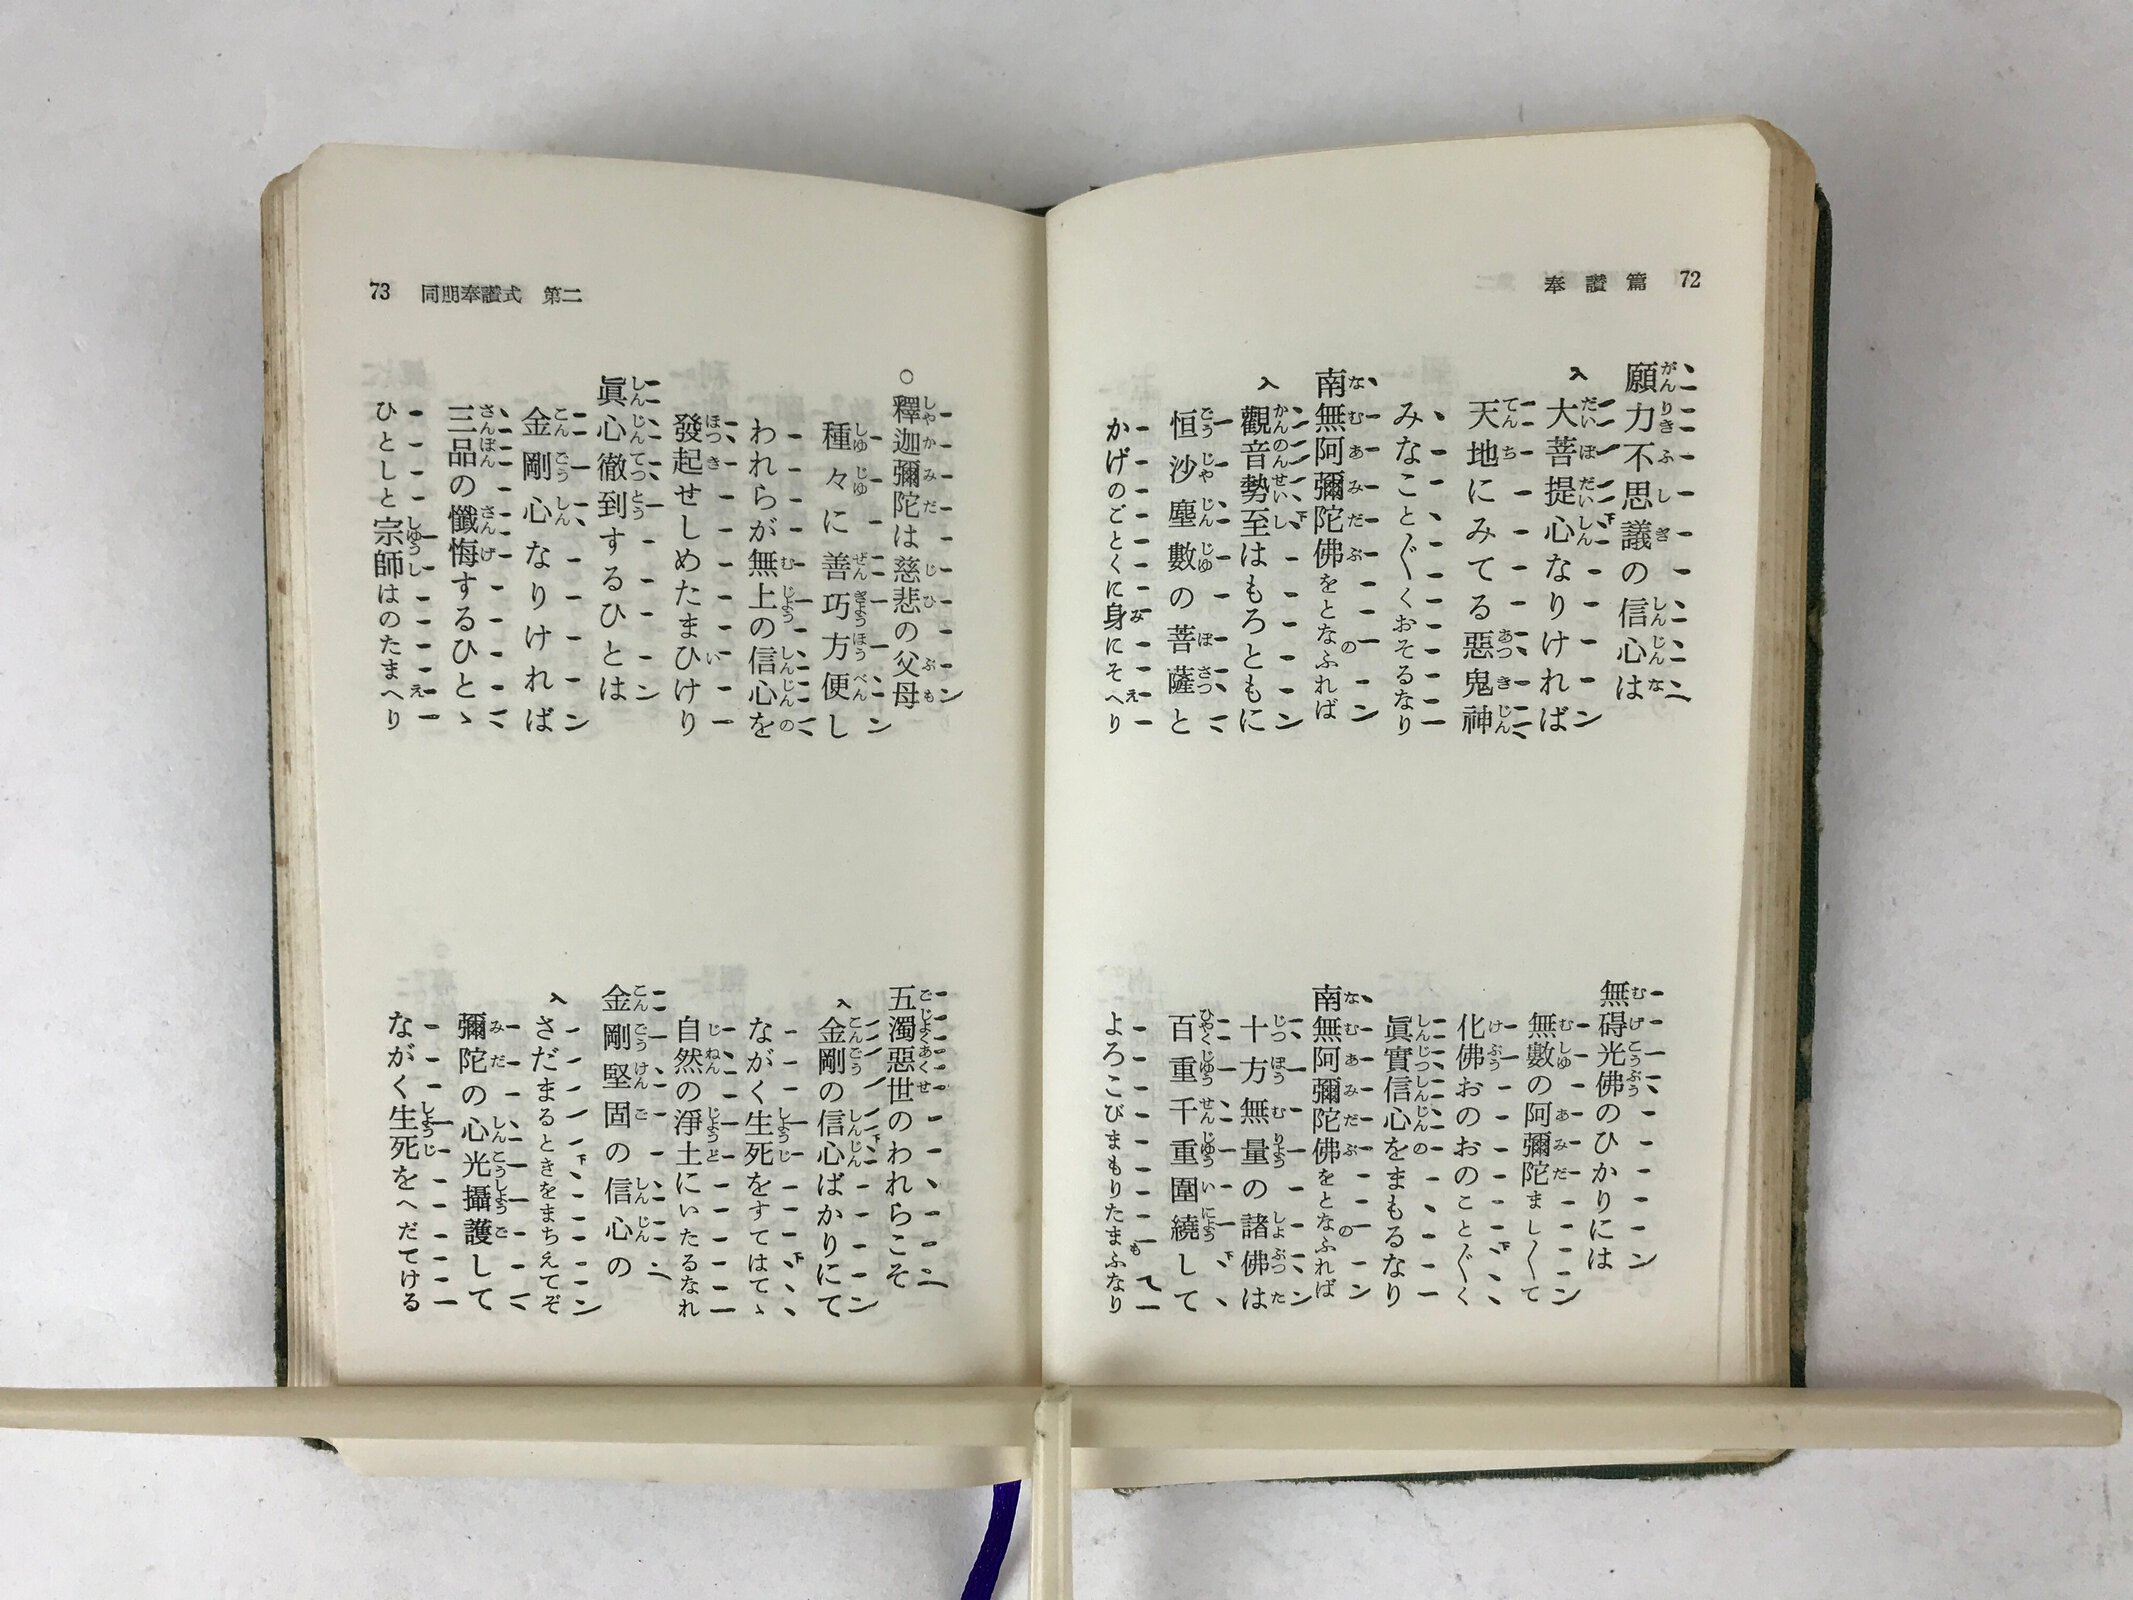 奉讃篇 72
願力不思議の信心は
大菩提心なりければ
天地にみてる惡鬼神
みなこと〴〵くおそるなり
南無阿彌陀佛をとなふれば
觀音勢至はもろともに
恒沙塵數の菩薩と
かげのごとくに身にそへり
無碍光佛のひかりには
無數の阿彌陀まし〳〵て
化佛おのおのこと〴〵く
眞實信心をまもるなり
南無阿彌陀佛をとなふれば
十方無量の諸佛は
百重千重圍繞して
よろこびまもりたまふなり
73 同朋奉讃式 第二
○釋迦彌陀は慈悲の父母
種々に善巧方便し
われらが無上の信心を
發起せしめたまひけり
眞心徹到するひとは
金剛心なりければ
三品の懺悔するひとゝ
ひとしと宗師はのたまへり
五濁惡世のわれらこそ
金剛の信心ばかりにて
ながく生死をすてはてゝ
自然の淨土にいたるなれ
金剛堅固の信心の
さだまるときをまちえてぞ
彌陀の心光攝護して
ながく生死をへだてける